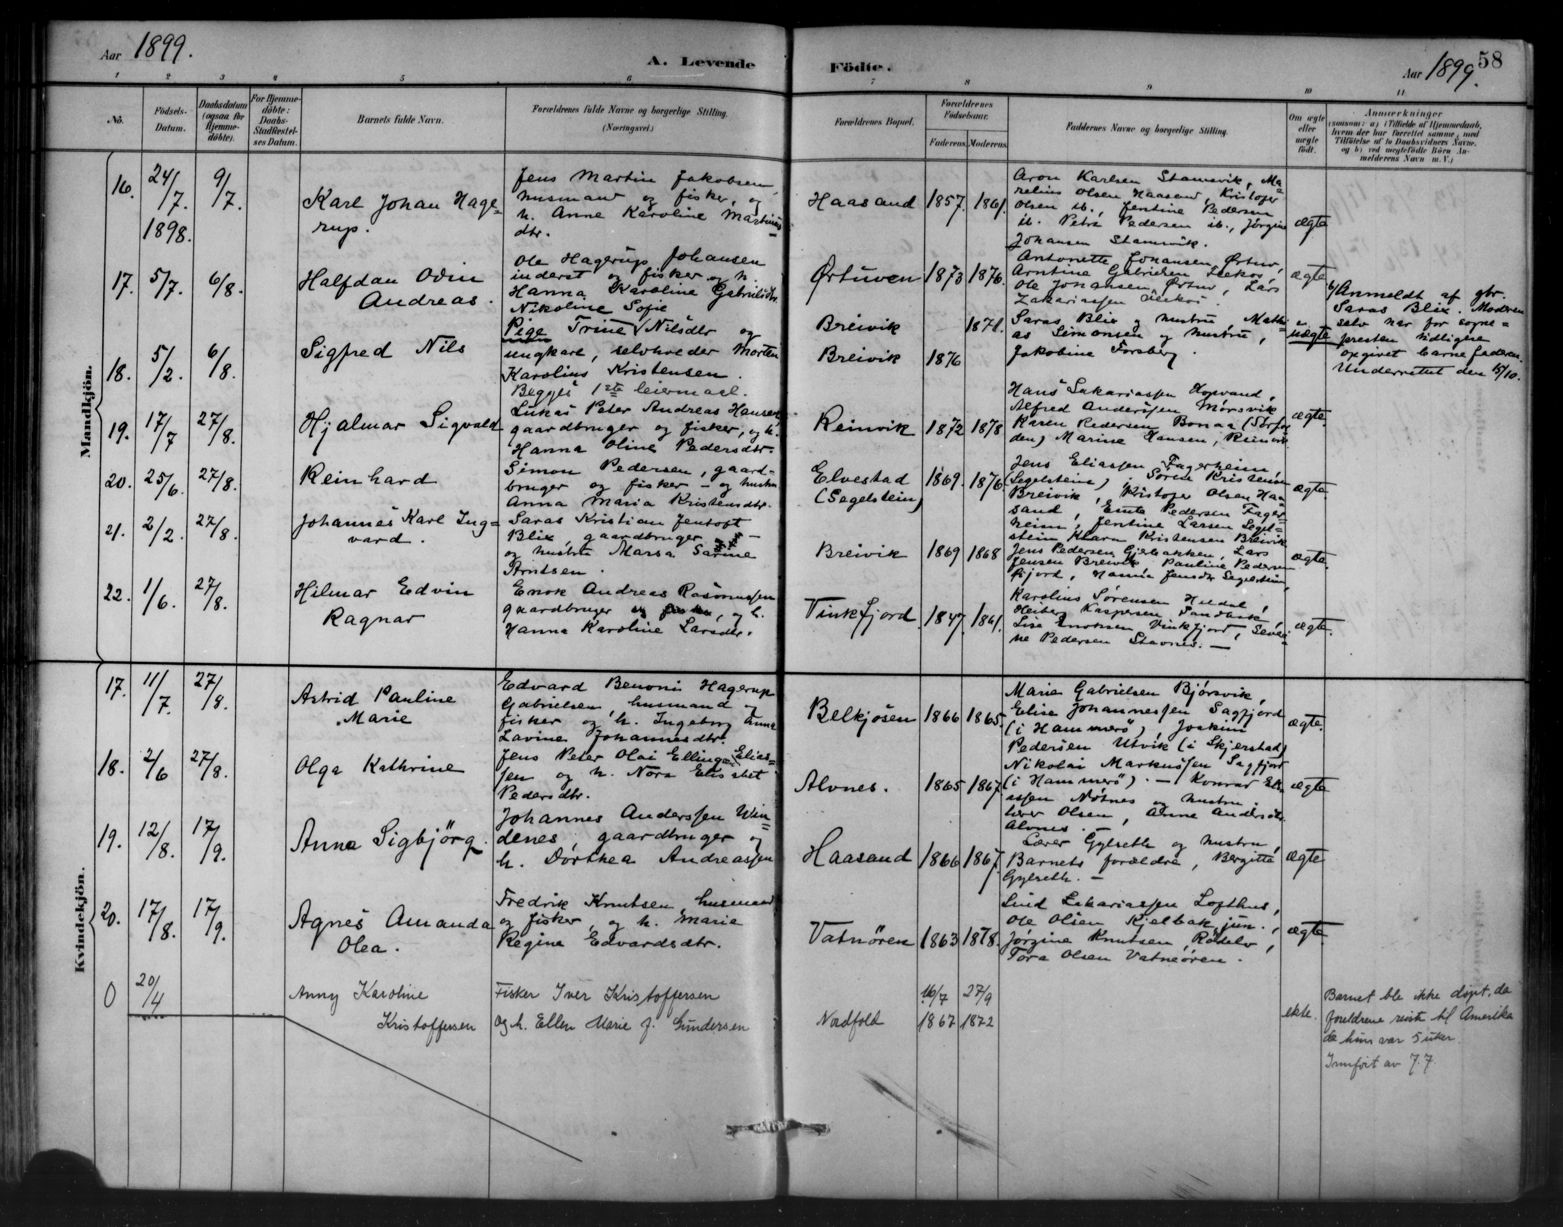 Aar 1899.
A. Levende
Födte.
58
Aar 1899.
1 2 3 4 5 6 7 8 9 10 11
No.
Födsels-
Datum.
Daabsdatum
(ogsaa for
Hjemme-
döbte).
For Hjemme-
döbte:
Daabs-
Stadfæstel-
ses Datum.
Barnets fulde Navn.
Forældrenes fulde Navne og borgerlige Stilling.
(Næringsvei.)
Forældrenes Bopæl.
Forældrenes
Födselsaar.
Faderens.
Moderens.
Faddernes Navne og borgerlige Stilling.
Om ægte
eller
uægte
födt.
Anmærkninger
Mandkjön.
16.
24/7.
1898.
9/7.
Karl Johan Hage-
rup.
Jens Martin Jakobsen
husmand og fisker, og
h. Anne Karoline Martinus
dtr.
Haasand
1857.
1861.
Aron Karlsen Stamsvik, Ma-
relius Olsen Haasand Kristofer
Olsen ib., Jentine Pedersen
ib. Petra Pedersen ib., Jørgine
Johansen Stamsvik.
ægte
17.
5/7.
6/8.
Halfdan Odin
Andreas.
Ole Hagerup Johansen
inderst og fisker og h.
Hanna Karoline Gabrielsdtr.
Ørtuven
1873
1876.
Antonette Johansen Ørtuv,
Arntine Gabrielsen
Ole Johansen Ørtuv, Lars
Zakariassen
ægte
18.
5/2.
6/8.
Sigfred Nils
Nikoline Sofie
Pige Trine Nilsdtr og
ungkarl, selvbreder Morten
Karolius Kristensen
Begges 1ste leiermaal.
Breivik
1871.
Breivik
1876
Saras Blix og hustru, Mathi-
as Simonsen og hustru,
Jakobine Forsberg.
uægte
Anmeldt af gbr.
Saras Blix. Moderen
selv har for sogne-
presten tidligere
opgivet barnefaderen.
Underrettet den 15/10.
19.
17/7
27/8.
Hjalmar Sigvald
Lukas Peter Andreas Hansen
gaardbruger og fisker, og h.
Hanna Oline Pedersdtr.
Reinvik
1872
1878
Hans Sakariassen
Alfred Anderssen Mørsvik
Karen Pedersen Bonaa (Sørfol
den) Marine Hansen, Reinvik
ægte.
20.
25/6.
27/8.
Reinhard
Simon Pedersen, gaard-
bruger og fisker - og hustru
Anna Maria Kristensdtr.
Elvestad
(Segelstein)
1869.
1876.
Jens Eliassen Fagerheim,
(Segelstein), Søren Kristensen
Breivik, Kristofer Olsen Haa
sand, Pedersen Fager
heim, Jentine Larsen Segel-
stein Klara Kristensen Breivik
ægte
21.
2/2.
27/8.
Johannes Karl Ing-
vard.
Saras Kristian Jentoft
Blix, gaardbruger -
og hustru Marsa Sarine
Arntsen.
Breivik
1869
1868
Jens Pedersen Gjelbakken, Lars
Jensen Breivik, Pauline Pedersen
fjord, Hanna Jensdtr Segelstein,
ægte.
22.
11/6.
27/8.
Hilmar Edvin
Ragnar
Enok Andreas Rasmussen
gaardbruger og h.
Hanna Karoline Larsdtr.
Vinkfjord.
1847.
1861.
Karolius Sørensen Heldal,
Kaspersen Sandbakk,
Lise Enoksen Vinkfjord, Seve-
ne Pedersen Stavnes. -
ægte.
Kvindekjön.
17.
11/7.
27/8.
Astrid Pauline
Marie
Edvard Benoni Hagerup
Gabrielsen, husmand og
fisker og h. Ingeborg Anna
Lavine Johannesdtr.
Belkjøsen
1866
1865.
Marie Gabrielsen Bjørsvik,
Elise Johannessen Sagfjord
(i Hammerø), Joakim
Pedersen Utvik (i Skjerstad)
ægte.
18.
2/6
27/8.
Olga Kathrine
Jens Peter Olai Ellings Elias-
sen og h. Nora Elisabet
Pedersdtr.
Alvnes.
1865
1867.
Nikolai Markussen Sagfjord
(i Hammerø). - Konrad Eli-
assen Nøtnes og hustru,
Olsen, Anne Andersdtr
Alvnes. -
ægte
19.
12/8.
17/9.
Anna Sigbjörg.
Johannes Anderssen Win-
denes, gaardbruger og
h. Dorthea Andreassen
Haasand
1866
1867.
Lærer Gylseth og hustru,
Barnets forældre, Bergitta
Gylseth. -
ægte
20.
17/8.
17/9.
Agnes Amanda
Olea.
Fredrik Knutsen, husmand
og fisker og h. Maria
Regine Edvardsdtr.
Vatnören
1863
1878.
Sakariassen Lofthus,
Ole Olsen Kjelbak jun.,
Jørgine Knutsen, Rødelv,
Tora Olsen Vatneören.
ægte
0
20/4
Anny Karoline
Kristoffersen
Fisker Iver Kristoffersen
og h. Ellen Marie f. Gundersen
Nordfold
16/7
1867
27/9
1872
ekte.
Barnet ble ikke døpt, da
foreldrene reiste til Amerika
da hun var 5 uker.
Innført av J.J.